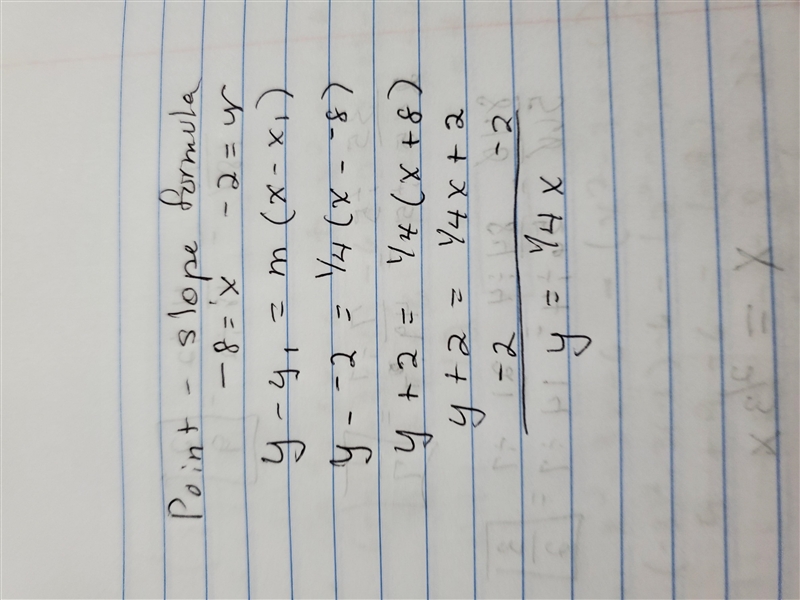 Point - slope formula
-8 = x -2 = y
y - y₁ = m (x - x₁)
y - -2 = 1/4 (x - -8)
y + 2 = 1/4 (x + 8)
y + 2 = 1/4 x + 2
-2 -2
y = 1/4 x